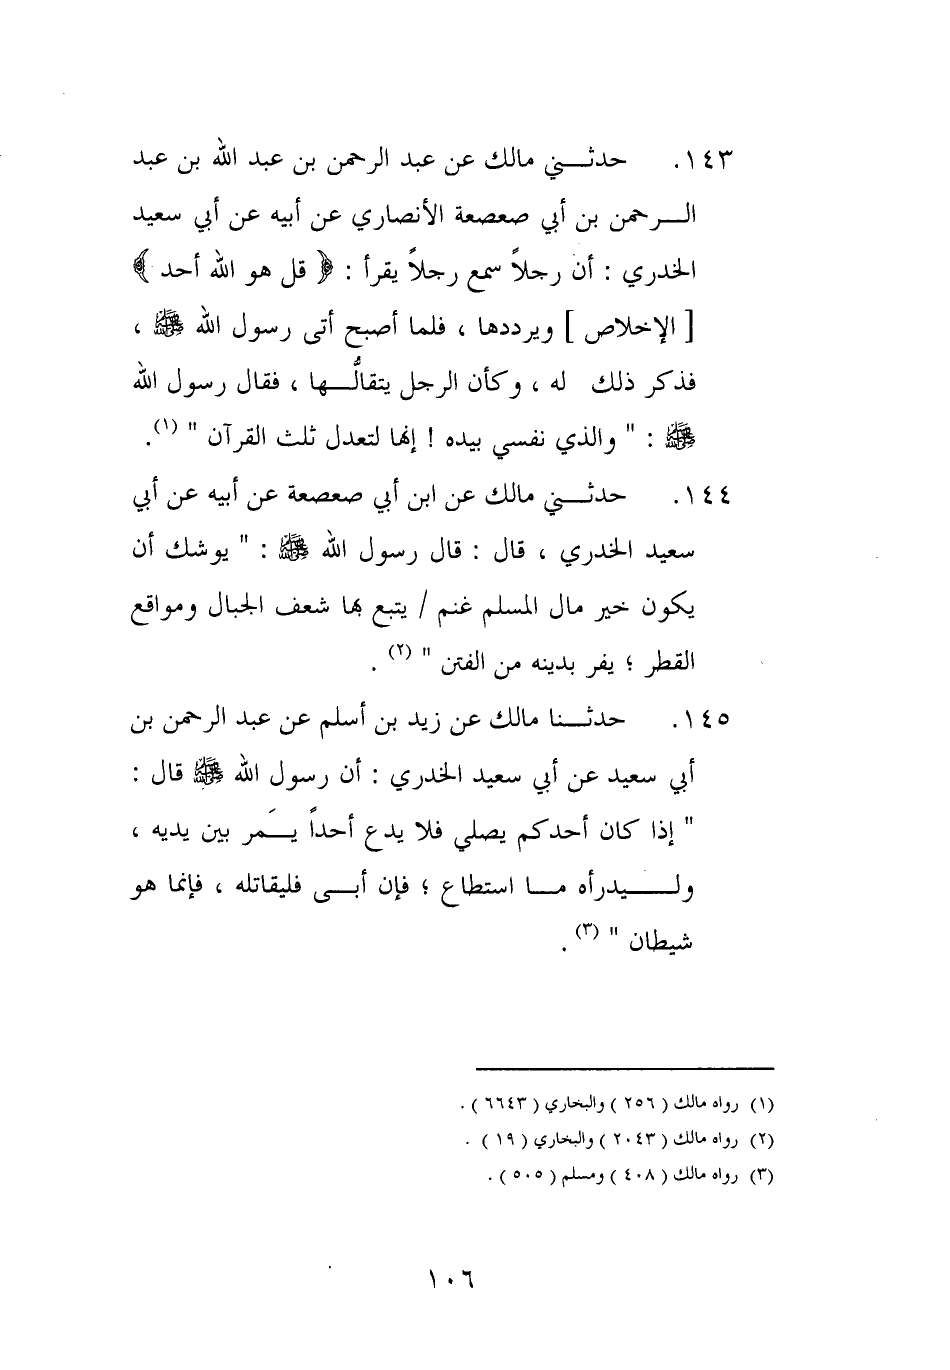 ١٤٣. حدثـــني مالك عن عبد الرحمن بن عبد الله بن عبد
الـــرحمن بن أبي صعصعة الأنصاري عن أبيه عن أبي سعيد
الخدري : أن رجلاً سمع رجلاً يقرأ : ﴿ قل هو الله أحد ﴾
[ الإخلاص ] ويرددها ، فلما أصبح أتى رسول الله ﷺ ،
فذكر ذلك له ، وكأن الرجل يتقالُّـــها ، فقال رسول الله
ﷺ : " والذي نفسي بيده ! إنها لتعدل ثلث القرآن " (١).
١٤٤. حدثـــني مالك عن ابن أبي صعصعة عن أبيه عن أبي
سعيد الخدري ، قال : قال رسول الله ﷺ : " يوشك أن
يكون خير مال المسلم غنم / يتبع بها شعف الجبال ومواقع
القطر ؛ يفر بدينه من الفتن " (٢) .
١٤٥. حدثـــنا مالك عن زيد بن أسلم عن عبد الرحمن بن
أبي سعيد عن أبي سعيد الخدري : أن رسول الله ﷺ قال :
" إذا كان أحدكم يصلي فلا يدع أحداً يـــَمر بين يديه ،
ولـــــيدرأه مـــا استطاع ؛ فإن أبـــى فليقاتله ، فإنما هو
شيطان " (٣) .
(١) رواه مالك ( ٢٥٦ ) والبخاري ( ٦٦٤٣ ) .
(٢) رواه مالك ( ٢٠٤٣ ) والبخاري ( ١٩ ) .
(٣) رواه مالك ( ٤٠٨ ) ومسلم ( ٥٠٥ ) .
١٠٦